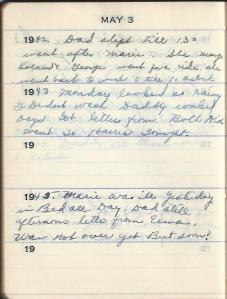 MAY 3
1942. Dad slept till 1.30
went after Marie. She may
George went for a ride. she
went back to work
1943 Monday looked so Rainy
I Didnt wash Daddy worked
Days Got letter from
went to Harris Tonight.
19
1945. Marie was ill Yesterday
in Bed all Day. Dad still
afternoons letter from
War not over yet But soon?
19